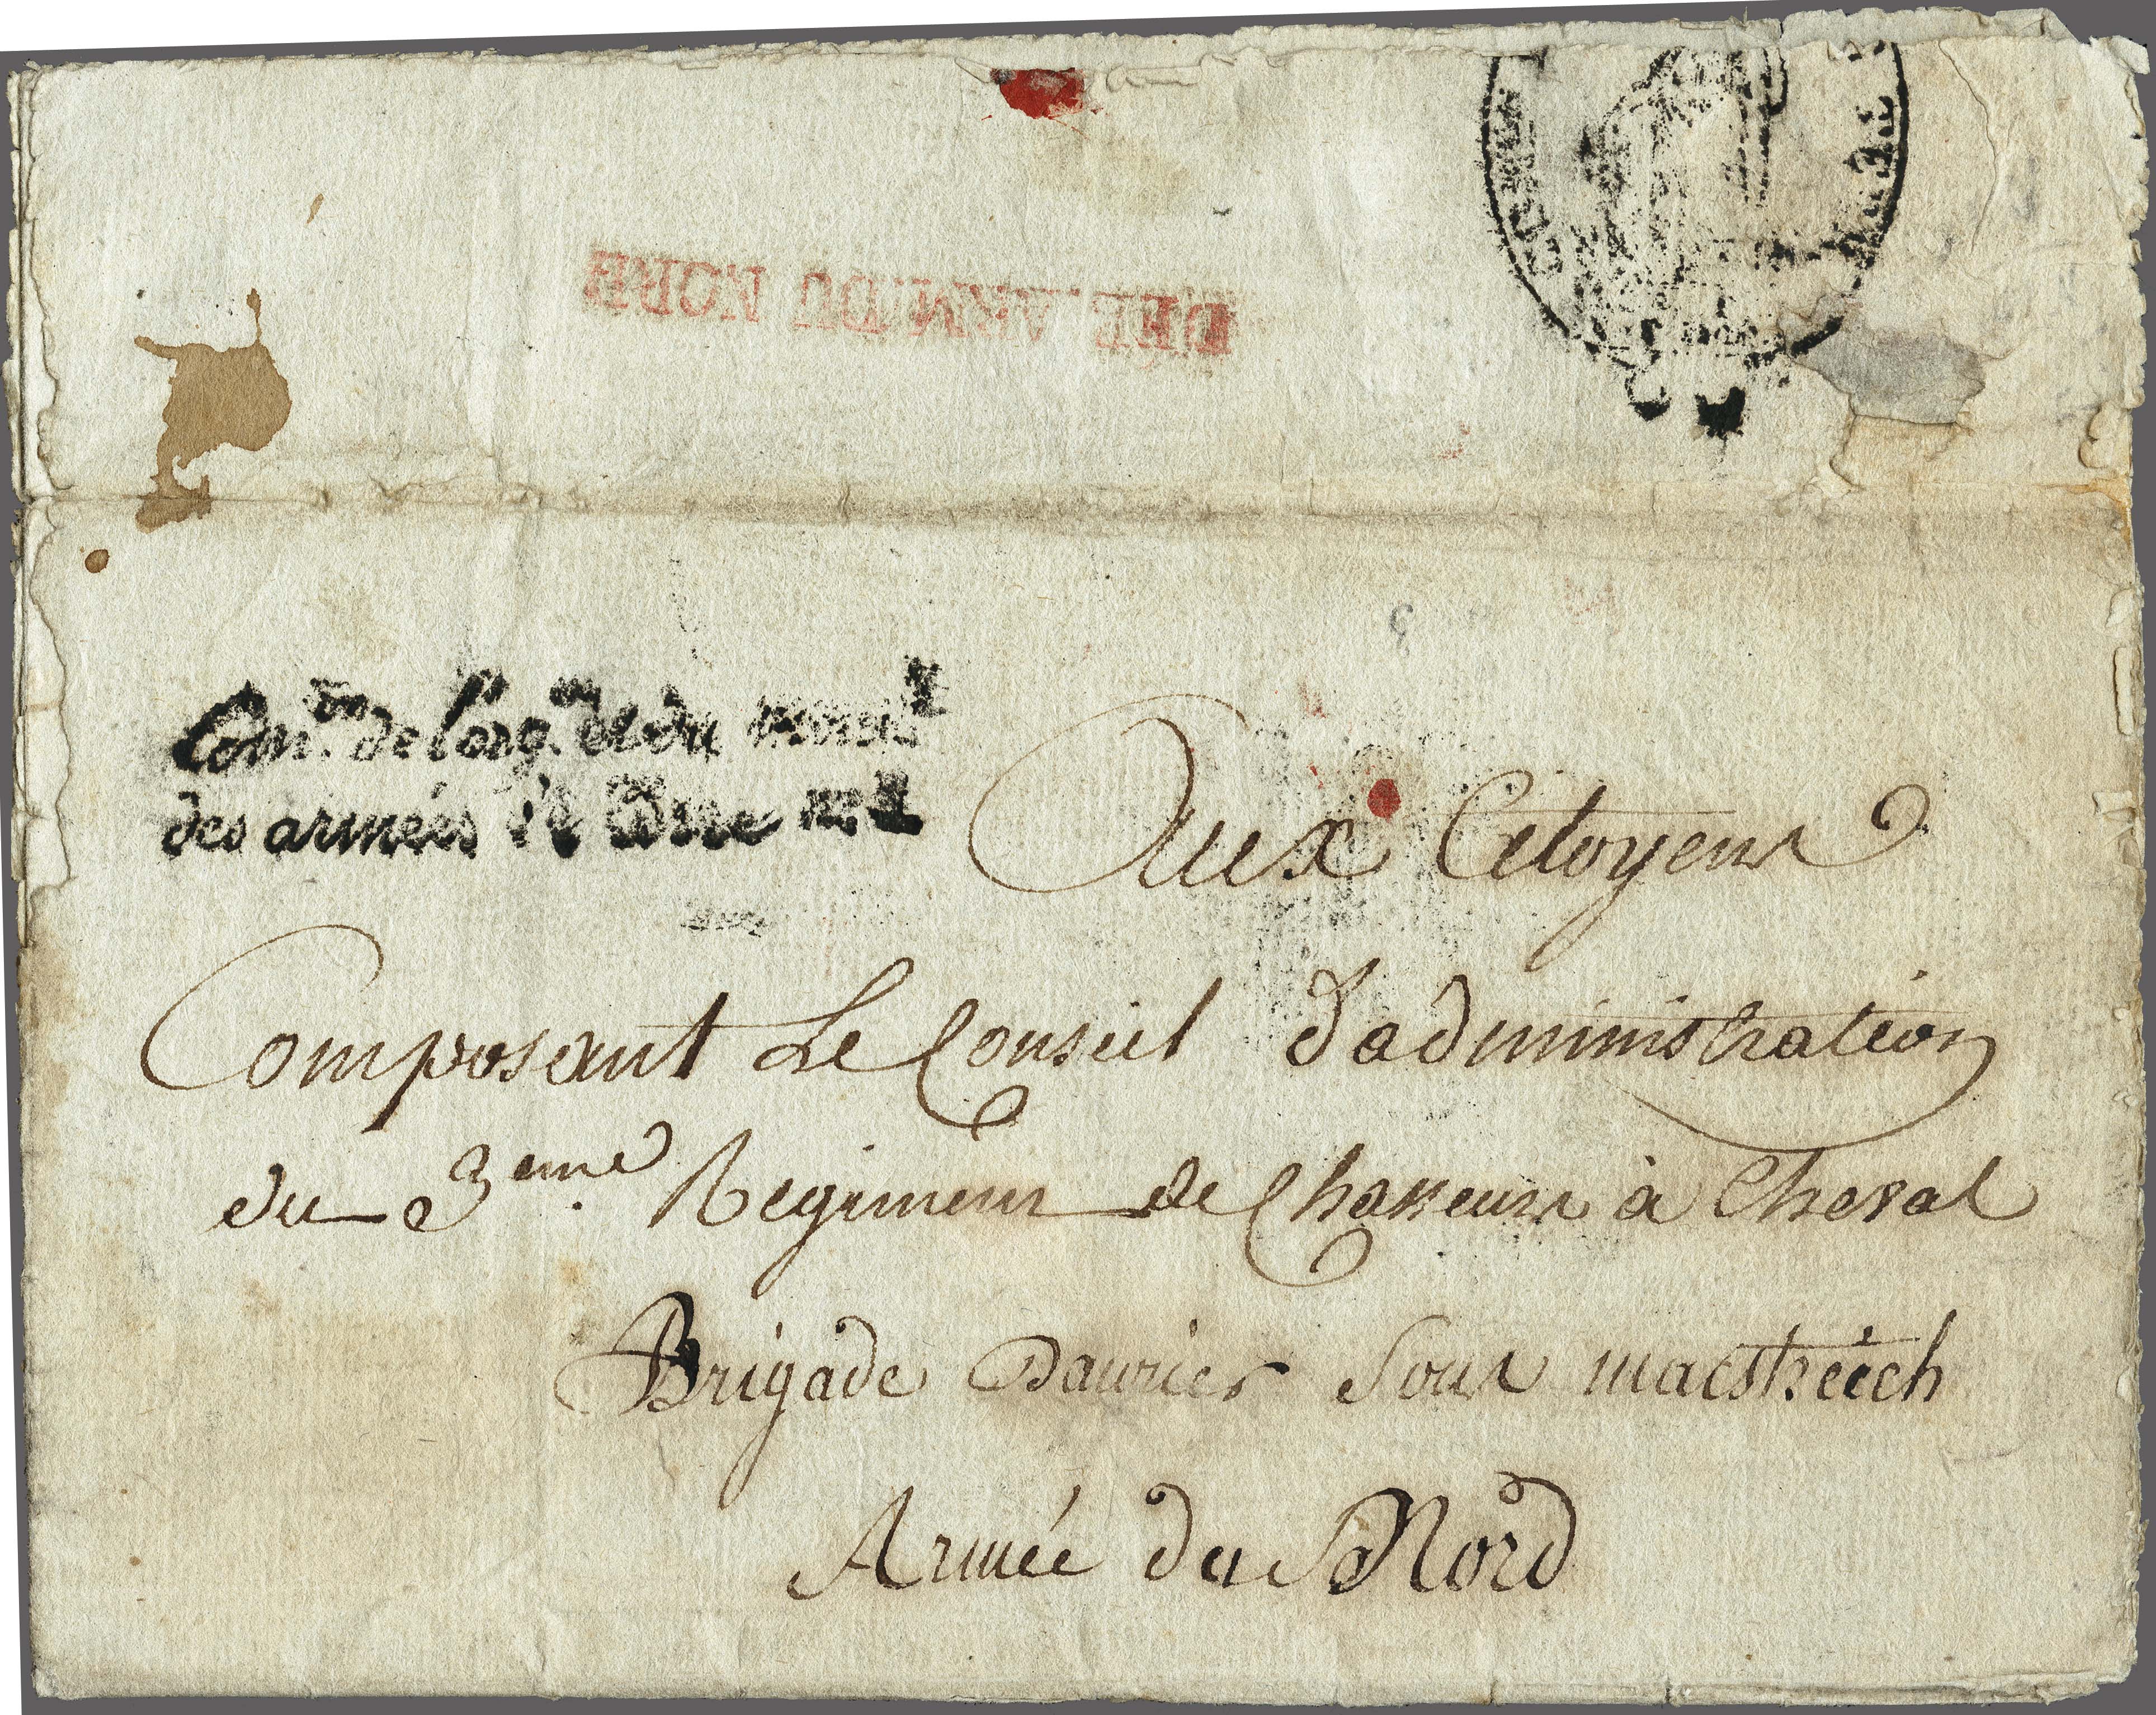 DEB. ARM. DU NORD
Com.on de l'org.on et du mouv.t
des armées de terre
Aux Citoyens
Composant Le Conseil d'administration
du 3eme Regiment de Chasseurs à Cheval
Brigade Daurier Sous mastreich
Armée du Nord